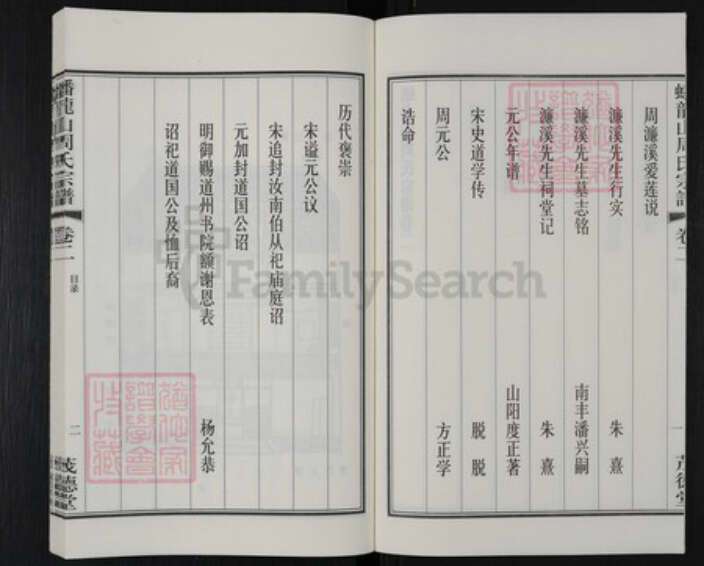 周濂溪爱莲说
濂溪先生行实 朱熹
濂溪先生墓志铭 南丰潘兴嗣
濂溪先生祠堂记 朱熹
元公年谱 山阳度正著
宋史道学传 脱脱
周元公 方正学
诰命
历代褒崇
宋谥元公议
宋追封汝南伯从祀庙庭诏
元加封道国公诏
明御赐道州书院额谢恩表 杨允恭
诏祀道国公及恤后裔
蟠龍山周氏宗譜 卷二 目录 二 茂德堂
FamilySearch